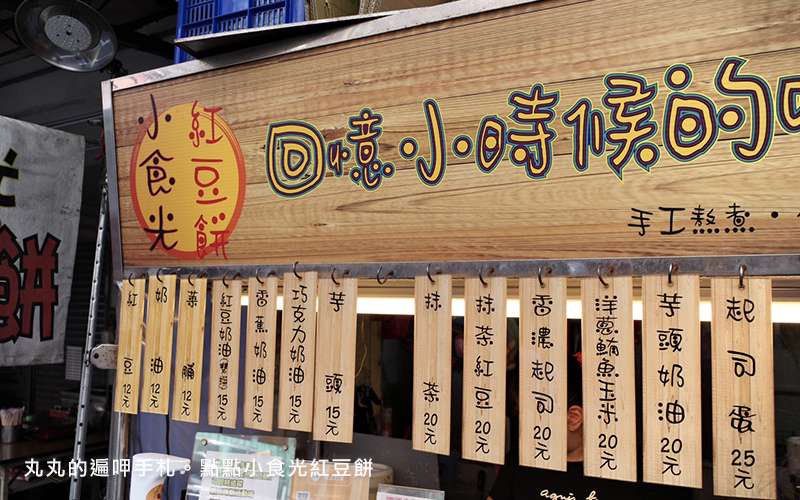 紅豆餅
小食光
回憶小時候的
手工熬煮・
餅
紅豆 12元
奶油 12元
菜脯 12元
紅豆奶油雙拼 15元
香蕉奶油 15元
巧克力奶油 15元
芋頭 15元
抹茶 20元
抹茶紅豆 20元
香濃起司 20元
洋蔥鮪魚玉米 20元
芋頭奶油 20元
起司蛋 25元
agnès b.
丸丸的遍呷手札。點點小食光紅豆餅